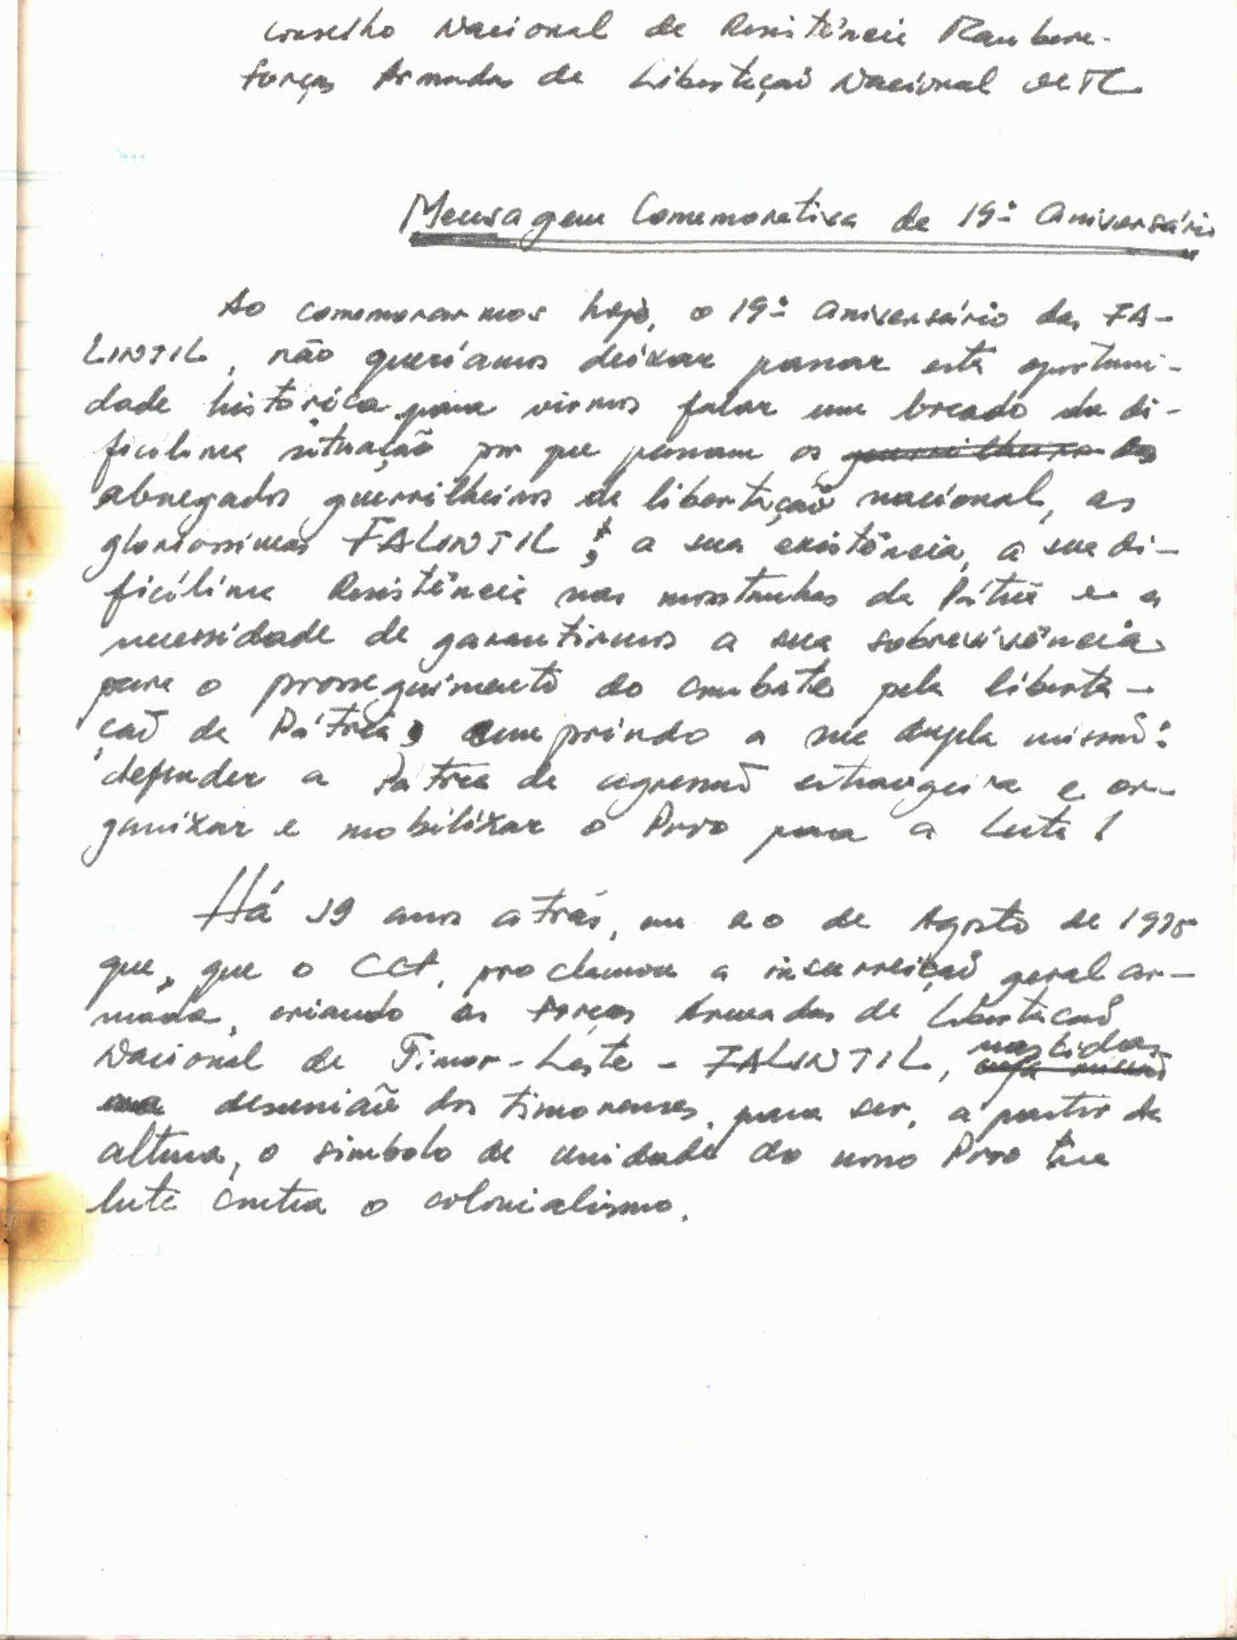 Conselho Nacional de Resistência Maubere.
Forças Armadas de Libertação Nacional de TL
Mensagem Comemorativa de 19º aniversário
Ao comemorarmos hoje, o 19º aniversário das FA-
LINTIL, não queríamos deixar passar esta oportuni-
dade histórica para virmos falar um bocado da di-
ficílima situação por que passam os guerrilheiros das
abnegados guerrilheiros de libertação nacional, as
gloriosissimas FALINTIL; a sua existência, a sua di-
ficílima Resistência nas montanhas da Pátria e a
necessidade de garantirmos a sua sobrevivência
para o prosseguimento do combate pela liberta-
ção da Pátria, cumprindo a sua dupla missão:
defender a Pátria da agressão estrangeira e or-
ganizar e mobilizar o Povo para a Luta!
Há 19 anos atrás, em 20 de Agosto de 1975
que, que o CCF, proclamou a insurreição geral ar-
mada, criando as Forças Armadas de Libertação
Nacional de Timor-Leste - FALINTIL, nascidas
na desunião dos timorenses, para ser, a partir da
altura, o simbolo de unidade do nosso Povo na
luta contra o colonialismo.